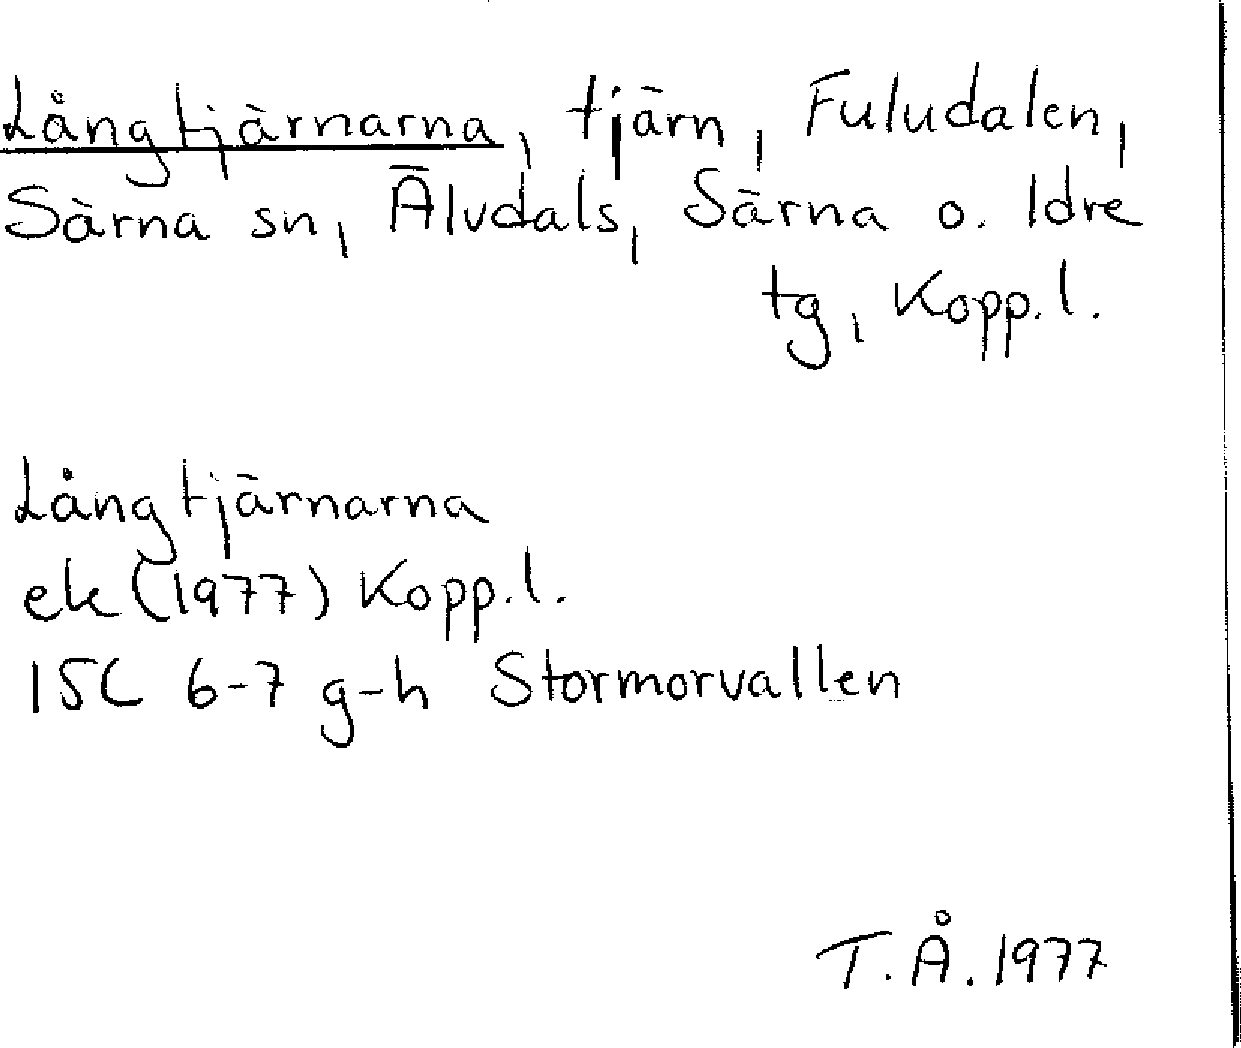 Långtjärnarna, tjärn, Fuludalen,
Särna sn, Älvdals, Särna o. Idre
tg, Kopp.l.
Långtjärnarna
ek (1977) Kopp.l.
15C 6-7 g-h Stormorvallen
T.Å. 1977